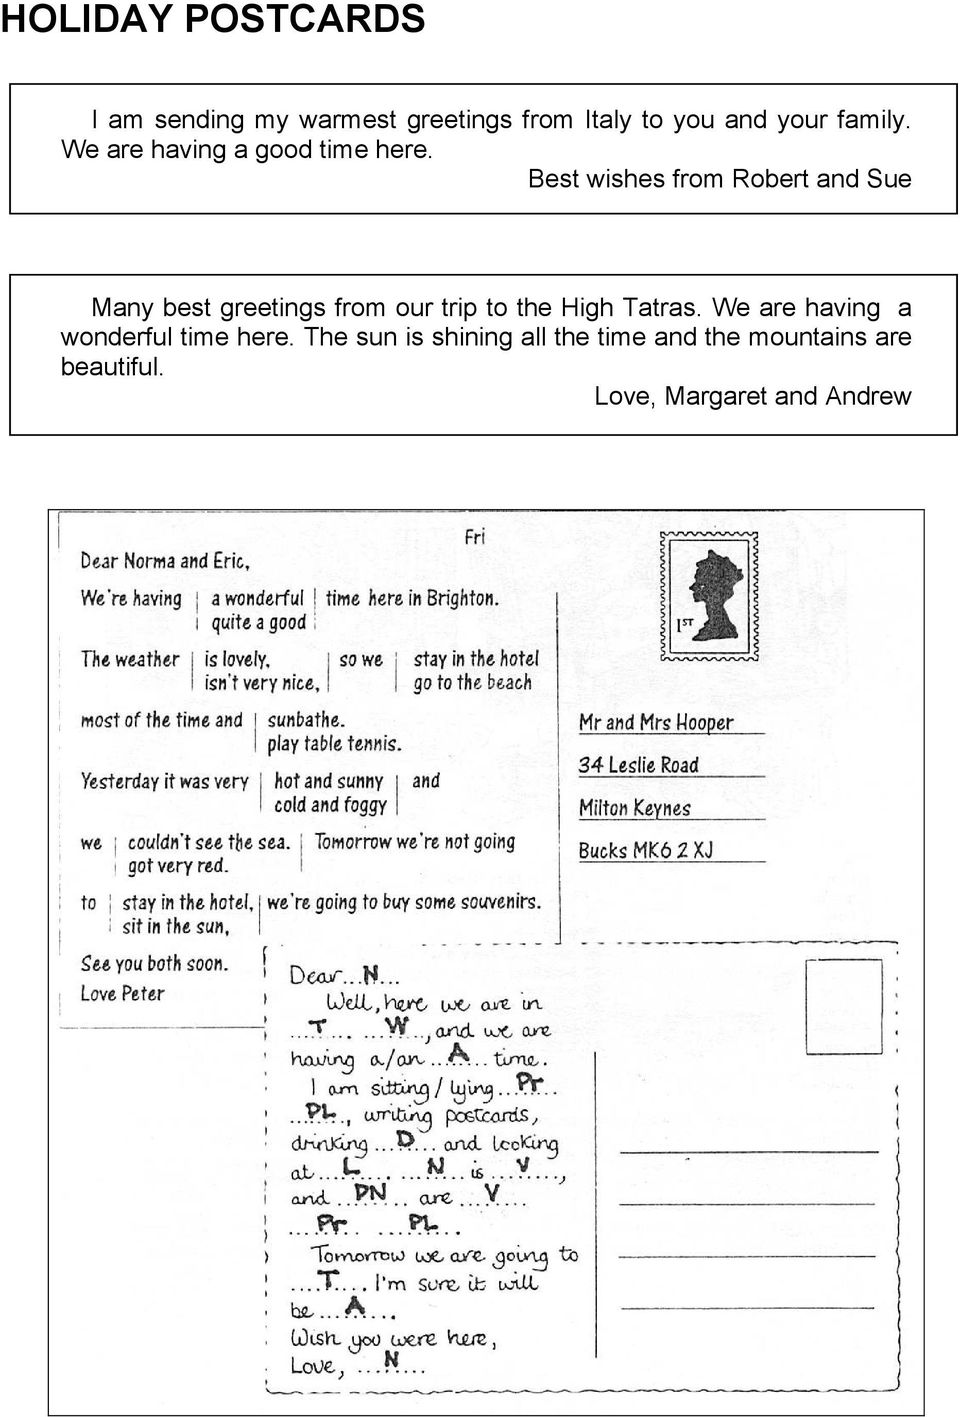 HOLIDAY POSTCARDS
I am sending my warmest greetings from Italy to you and your family.
We are having a good time here.
Best wishes from Robert and Sue
Many best greetings from our trip to the High Tatras. We are having a
wonderful time here. The sun is shining all the time and the mountains are
beautiful.
Love, Margaret and Andrew
Fri
Dear Norma and Eric,
We're having | a wonderful | time here in Brighton.
| quite a good |
The weather | is lovely, | so we | stay in the hotel
| isn't very nice, | | go to the beach
most of the time and | sunbathe.
| play table tennis.
Yesterday it was very | hot and sunny | and
| cold and foggy |
we | couldn't see the sea. | Tomorrow we're not going
| got very red. |
to | stay in the hotel, | we're going to buy some souvenirs.
| sit in the sun, |
See you both soon.
Love Peter
1ST
Mr and Mrs Hooper
34 Leslie Road
Milton Keynes
Bucks MK6 2 XJ
Dear...N...
Well, here we are in
...T... ...W..., and we are
having a/an...A...time.
I am sitting / lying...Pr...
...PL..., writing postcards,
drinking...D... and looking
at...L... ...N...is...V...,
and...PN... are...V...
...Pr... ...PL...
Tomorrow we are going to
...T.... I'm sure it will
be...A....
Wish you were here,
Love, ...N...